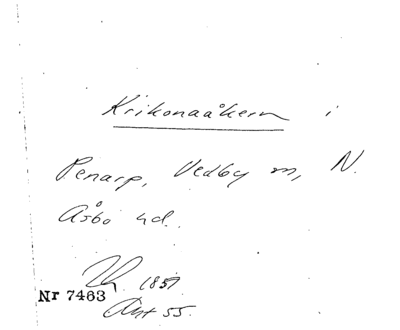 Krikonaåkern i
Penarp, Vedby sn, N.
Åsbo hd.
1851
Nr 7463
Akt 55.